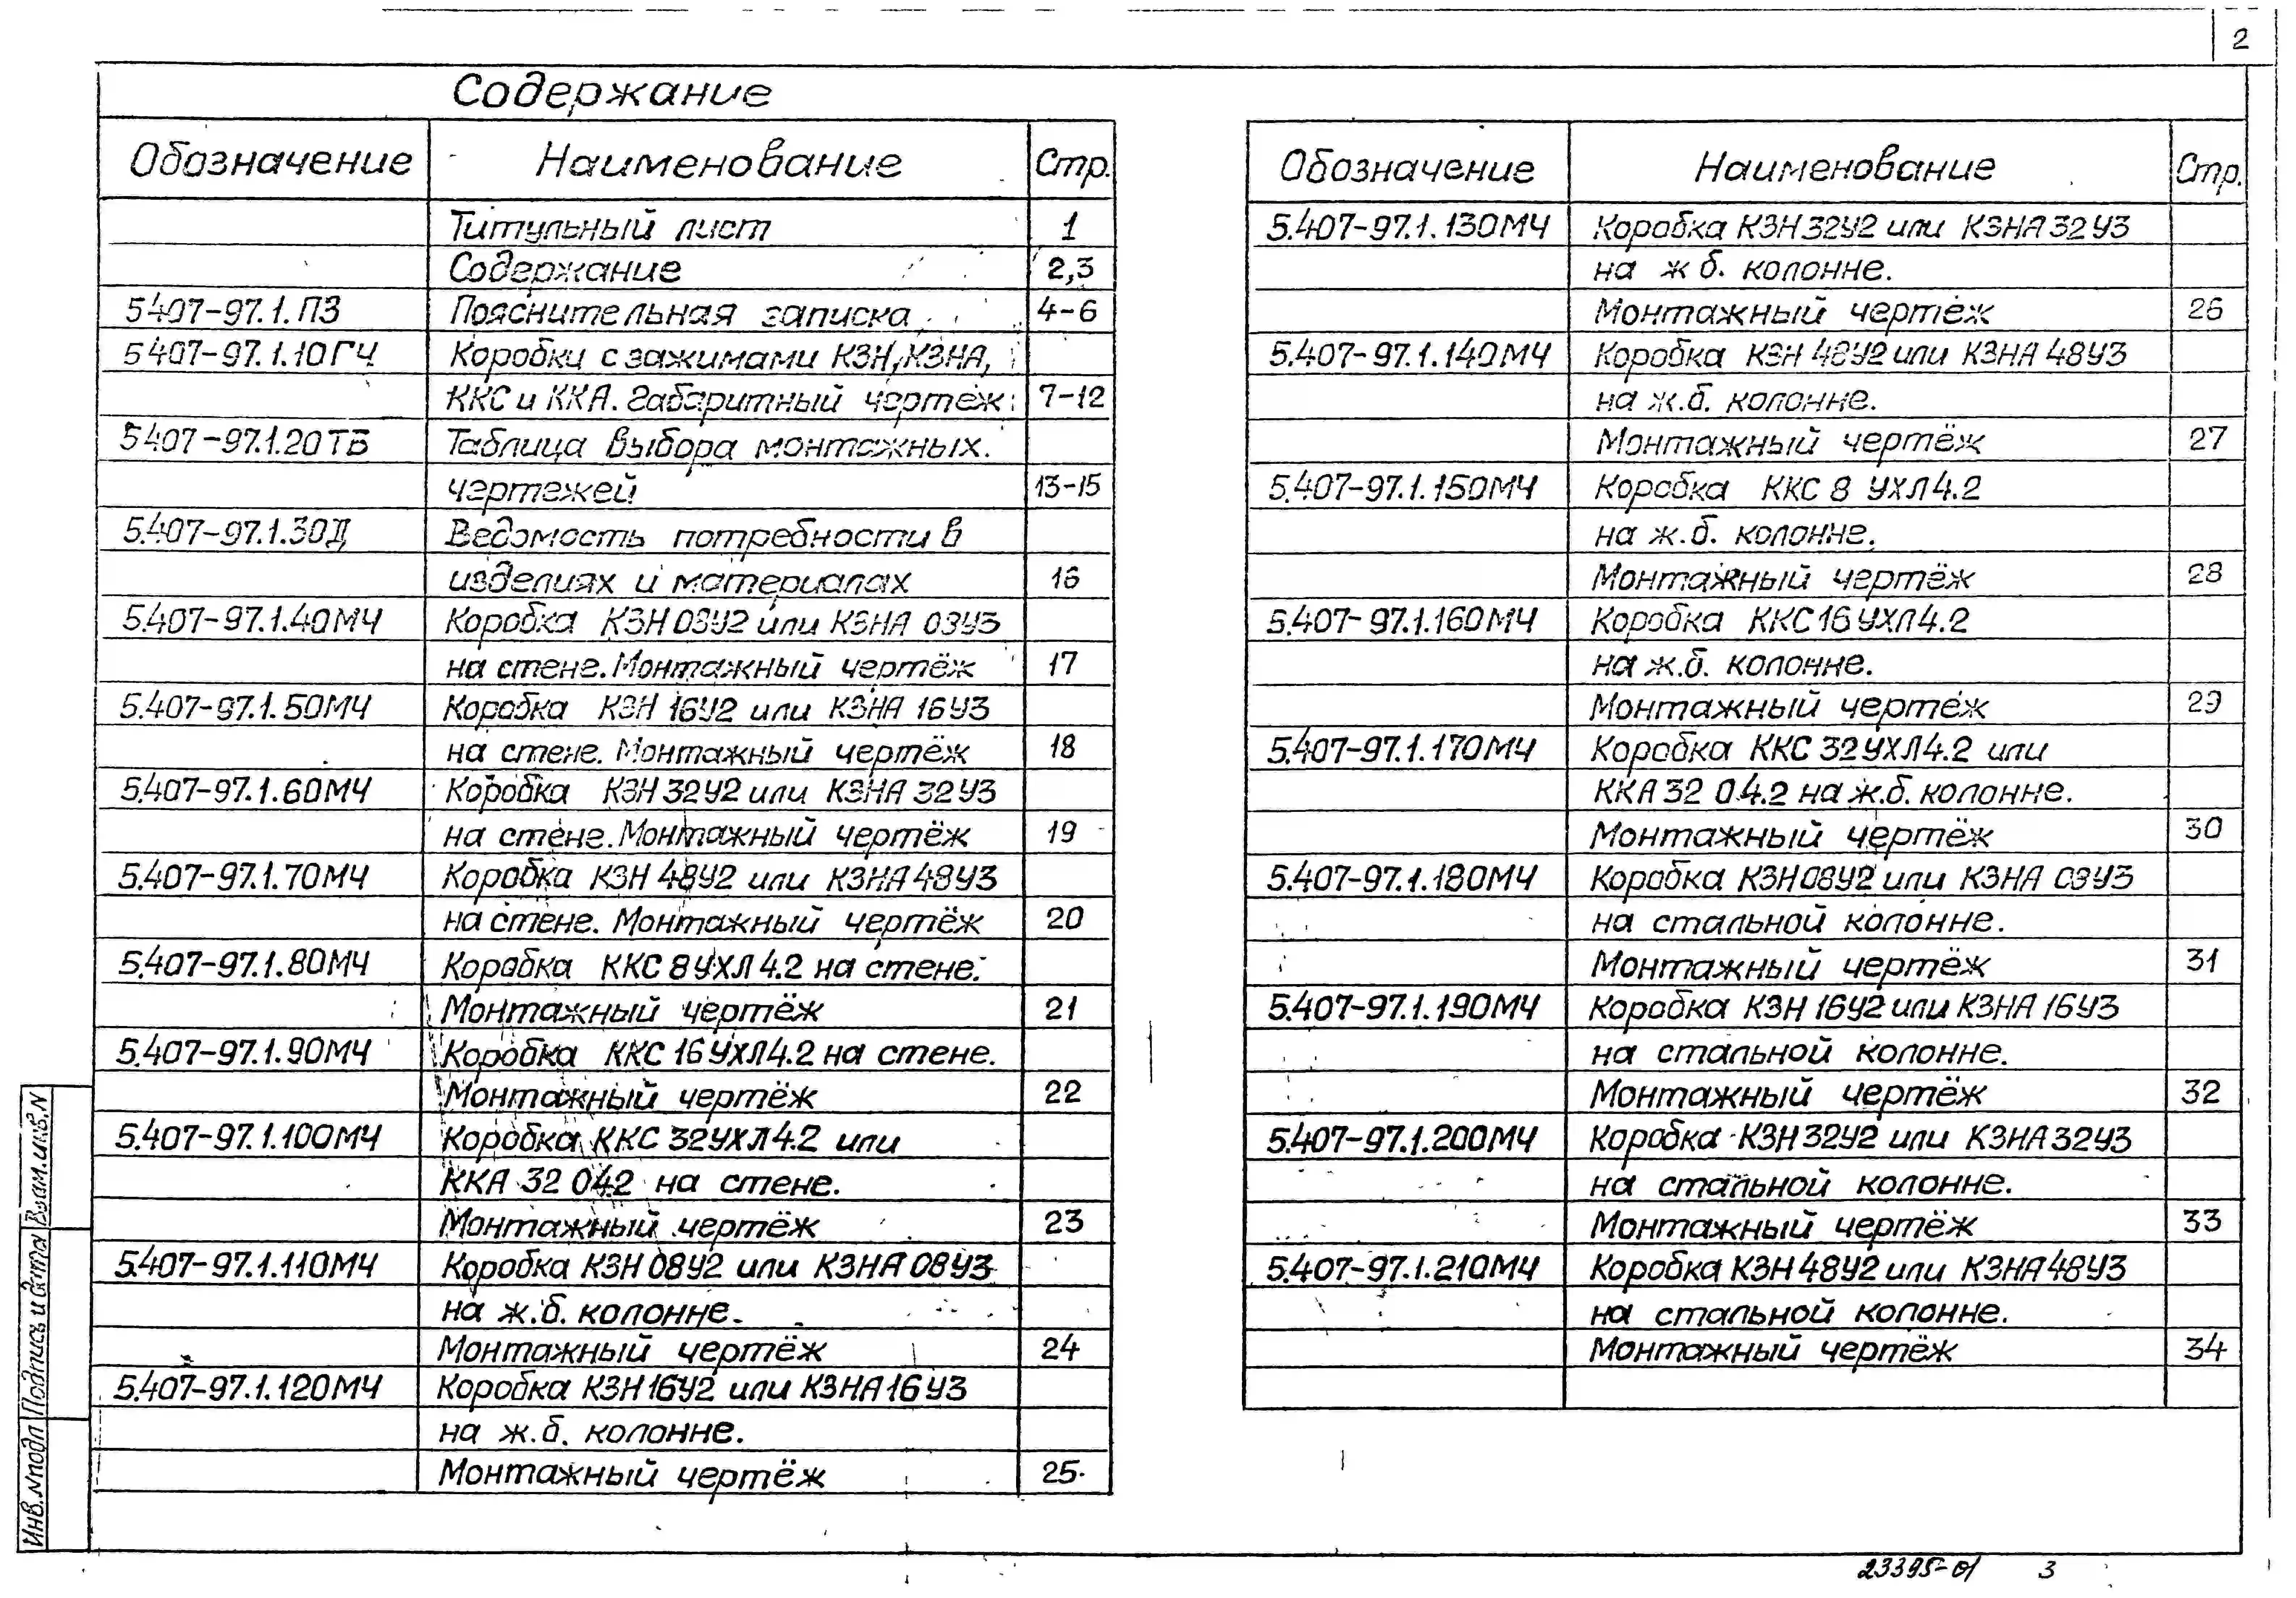 2
Содержание
Обозначение Наименование Стр.
Титульный лист 1
Содержание 2,3
5407-97.1.ПЗ Пояснительная записка 4-6
5407-97.1.10ГЧ Коробки с зажимами КЗН, КЗНА,
ККС и ККА. Габаритный чертёж 7-12
5407-97.1.20ТБ Таблица выбора монтажных
чертежей 13-15
5.407-97.1.30Д Ведомость потребности в
изделиях и материалах 16
5.407-97.1.40МЧ Коробка КЗН 08У2 или КЗНА 08У3
на стене. Монтажный чертёж 17
5.407-97.1.50МЧ Коробка КЗН 16У2 или КЗНА 16У3
на стене. Монтажный чертёж 18
5.407-97.1.60МЧ Коробка КЗН 32У2 или КЗНА 32У3
на стене. Монтажный чертёж 19
5.407-97.1.70МЧ Коробка КЗН 48У2 или КЗНА 48У3
на стене. Монтажный чертёж 20
5.407-97.1.80МЧ Коробка ККС 8 УХЛ 4.2 на стене.
Монтажный чертёж 21
5.407-97.1.90МЧ Коробка ККС 16 УХЛ4.2 на стене.
Монтажный чертёж 22
5.407-97.1.100МЧ Коробка ККС 32УХЛ4.2 или
ККА 32 04.2 на стене.
Монтажный чертёж 23
5.407-97.1.110МЧ Коробка КЗН 08У2 или КЗНА 08У3
на ж.б. колонне.
Монтажный чертёж 24
5.407-97.1.120МЧ Коробка КЗН 16У2 или КЗНА 16У3
на ж.б. колонне.
Монтажный чертёж 25
Обозначение Наименование Стр.
5.407-97.1.130МЧ Коробка КЗН 32У2 или КЗНА 32У3
на ж б. колонне.
Монтажный чертёж 26
5.407-97.1.140МЧ Коробка КЗН 48У2 или КЗНА 48У3
на ж.б. колонне.
Монтажный чертёж 27
5.407-97.1.150МЧ Коробка ККС 8 УХЛ4.2
на ж.б. колонне.
Монтажный чертёж 28
5.407-97.1.160МЧ Коробка ККС 16 УХЛ4.2
на ж.б. колонне.
Монтажный чертёж 29
5.407-97.1.170МЧ Коробка ККС 32УХЛ4.2 или
ККА 32 04.2 на ж.б. колонне.
Монтажный чертёж 30
5.407-97.1.180МЧ Коробка КЗН 08У2 или КЗНА 08У3
на стальной колонне.
Монтажный чертёж 31
5.407-97.1.190МЧ Коробка КЗН 16У2 или КЗНА 16У3
на стальной колонне.
Монтажный чертёж 32
5.407-97.1.200МЧ Коробка КЗН 32У2 или КЗНА 32У3
на стальной колонне.
Монтажный чертёж 33
5.407-97.1.210МЧ Коробка КЗН 48У2 или КЗНА 48У3
на стальной колонне.
Монтажный чертёж 34
Взам.инв.N
Подпись и дата
Инв.N подл
23395-01 3